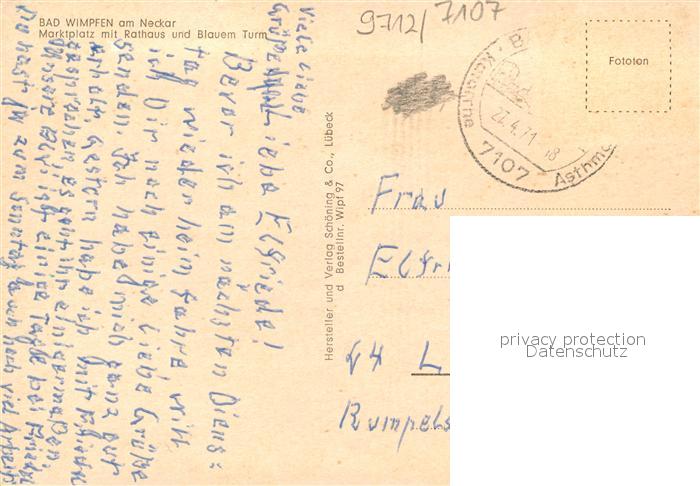 BAD WIMPFEN am Neckar
Marktplatz mit Rathaus und Blauem Turm
9712/7107
Fototon
Katarrhe
27.4.71 - 18
7107
Asthma
Viele liebe
Grüße
liebe Elfriede!
Bevor ich am nächsten Diens=
tag wieder heim fahre will
ich Dir noch einige liebe Grüße
senden. Ich habe mich ganz gut
erholt. Gestern habe ich mit
gesprochen es geht ihr einigermaßen.
Unsere ist einige Tage bei
Du hast ja zum Sonntag auch noch viel Arbeit
Hersteller und Verlag Schöning & Co., Lübeck
d Bestellnr. Wipf 97
Frau
Elfri
24 L
Rumpels
privacy protection
Datenschutz